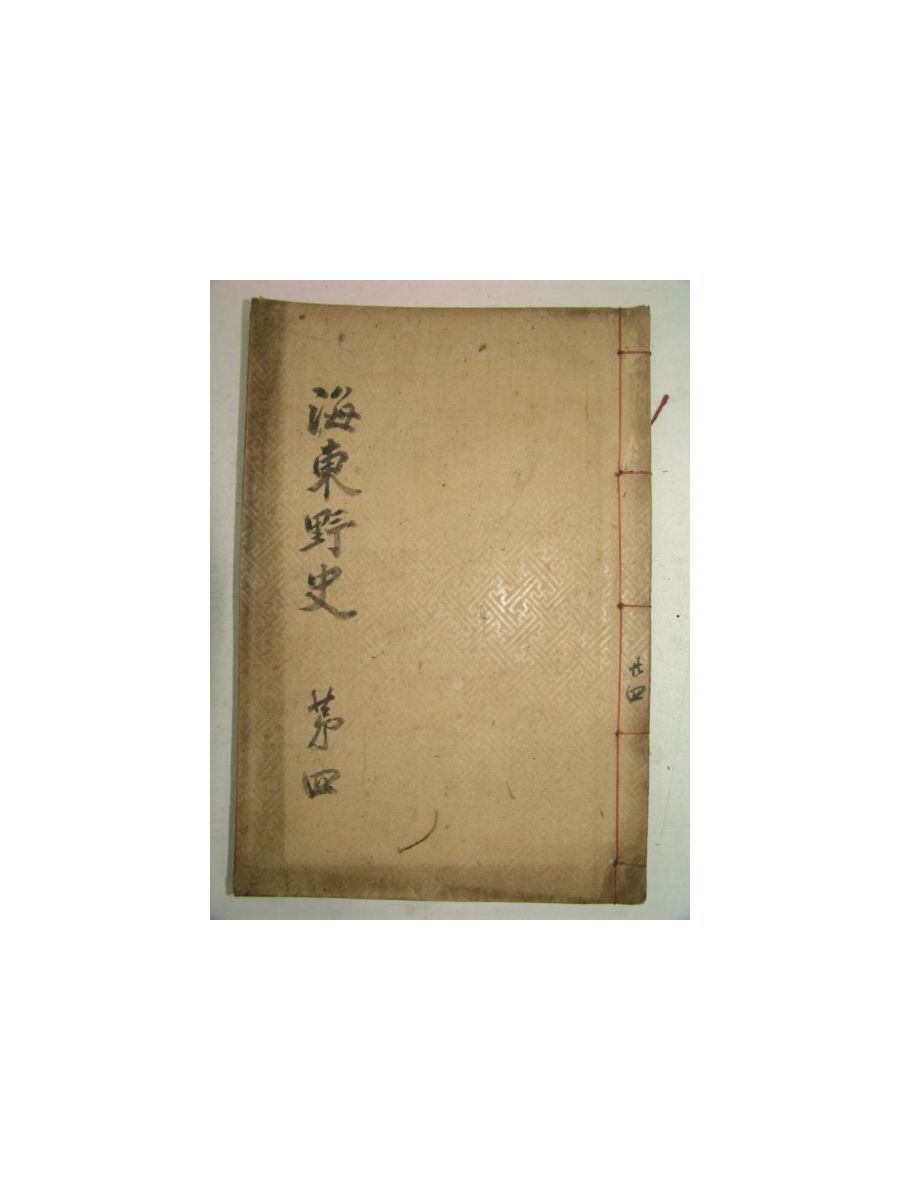 海東野史 第四
廿四